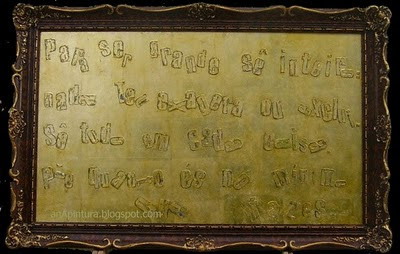 Para ser grande sê inteiro
nada teu exagera ou exclui.
Sê todo em cada coisa.
Põe quanto és no mínimo
fazes